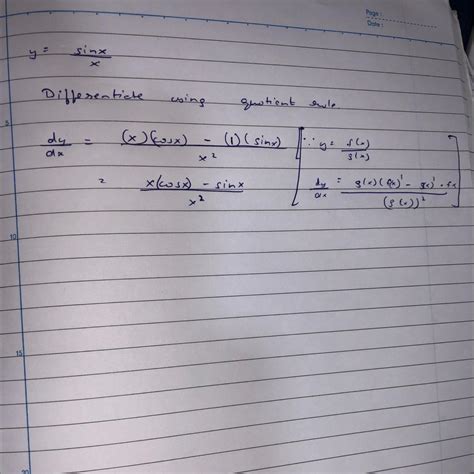 Page :
Date :
y = sinx / x
Differentiate using quotient rule.
dy/dx = (x)(cosx) - (1)(sinx) / x² [∵ y = f(x) / g(x)
= x(cosx) - sinx / x² dy/dx = g(x)(f(x))' - g(x)'·fx / (g(x))²]
5
10
15
20